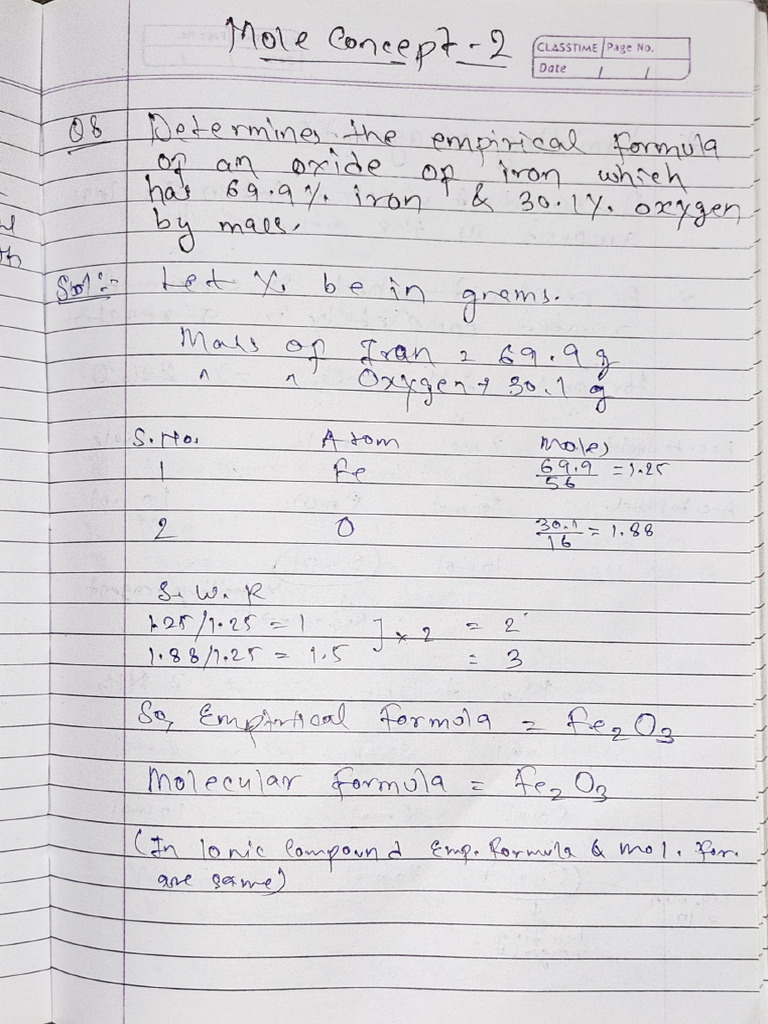 Mole Concept - 2
CLASSTIME Page No.
Date / /
Q8 Determines the empirical formula
of an oxide of iron which
has 69.9% iron & 30.1% oxygen
by mass.
Sol:- Let % be in grams.
Mass of Iran = 69.9 g
" " Oxygen → 30.1 g
S.No. Atom Moles
1 Fe 69.9/56 = 1.25
2 O 30.1/16 = 1.88
S. W. R
1.25/1.25 = 1 ] × 2 = 2
1.88/1.25 = 1.5 = 3
So, Empirical formola = Fe₂O₃
Molecular formula = Fe₂O₃
(In Ionic Compound Emp. formula & mol. for.
are same)